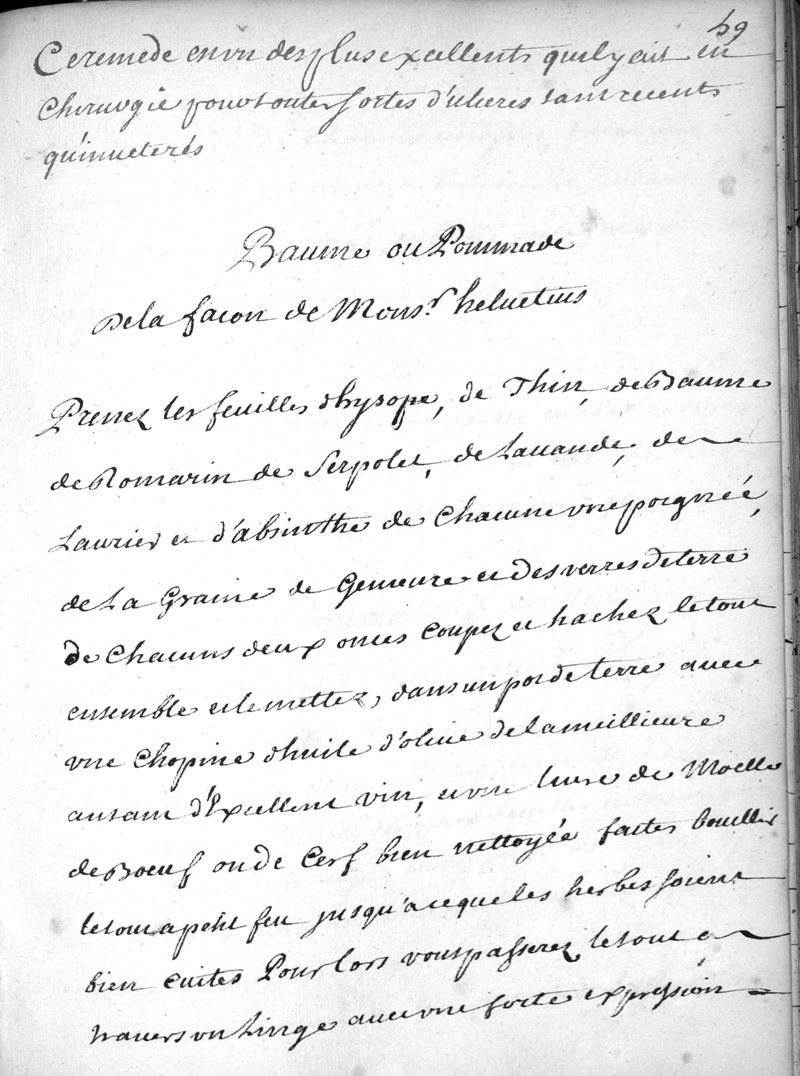 49
Ce remede en vn des plus excellents quil y ait en
Chirurgie pour toutes sortes d'ulceres tant recents
qu'inueterés
Baume ou Pommade
De la façon de Mons.r helvetius
Prenez les feuilles dhysope, de Thin, de Baume
de Romarin de Serpolet, de Lauande, de
Laurier et d'absinthe de chacune vne poignée,
de La Graine de Genieure et des verres de terre
de chacuns deux onces coupez et hachez le tout
ensemble et le mettez, dans un pot de terre auec
vne chopine dhuile d'oliue de la meillieure
autant d'Excellent vin, et vne liure de Moelle
de Boeuf ou de Cerf bien nettoyée faites bouillir
le tout a petit feu jusqu'a ce que les herbes soient
bien cuites Pour lors vous passerez le tout a
trauers vn Linge auec vne forte expression